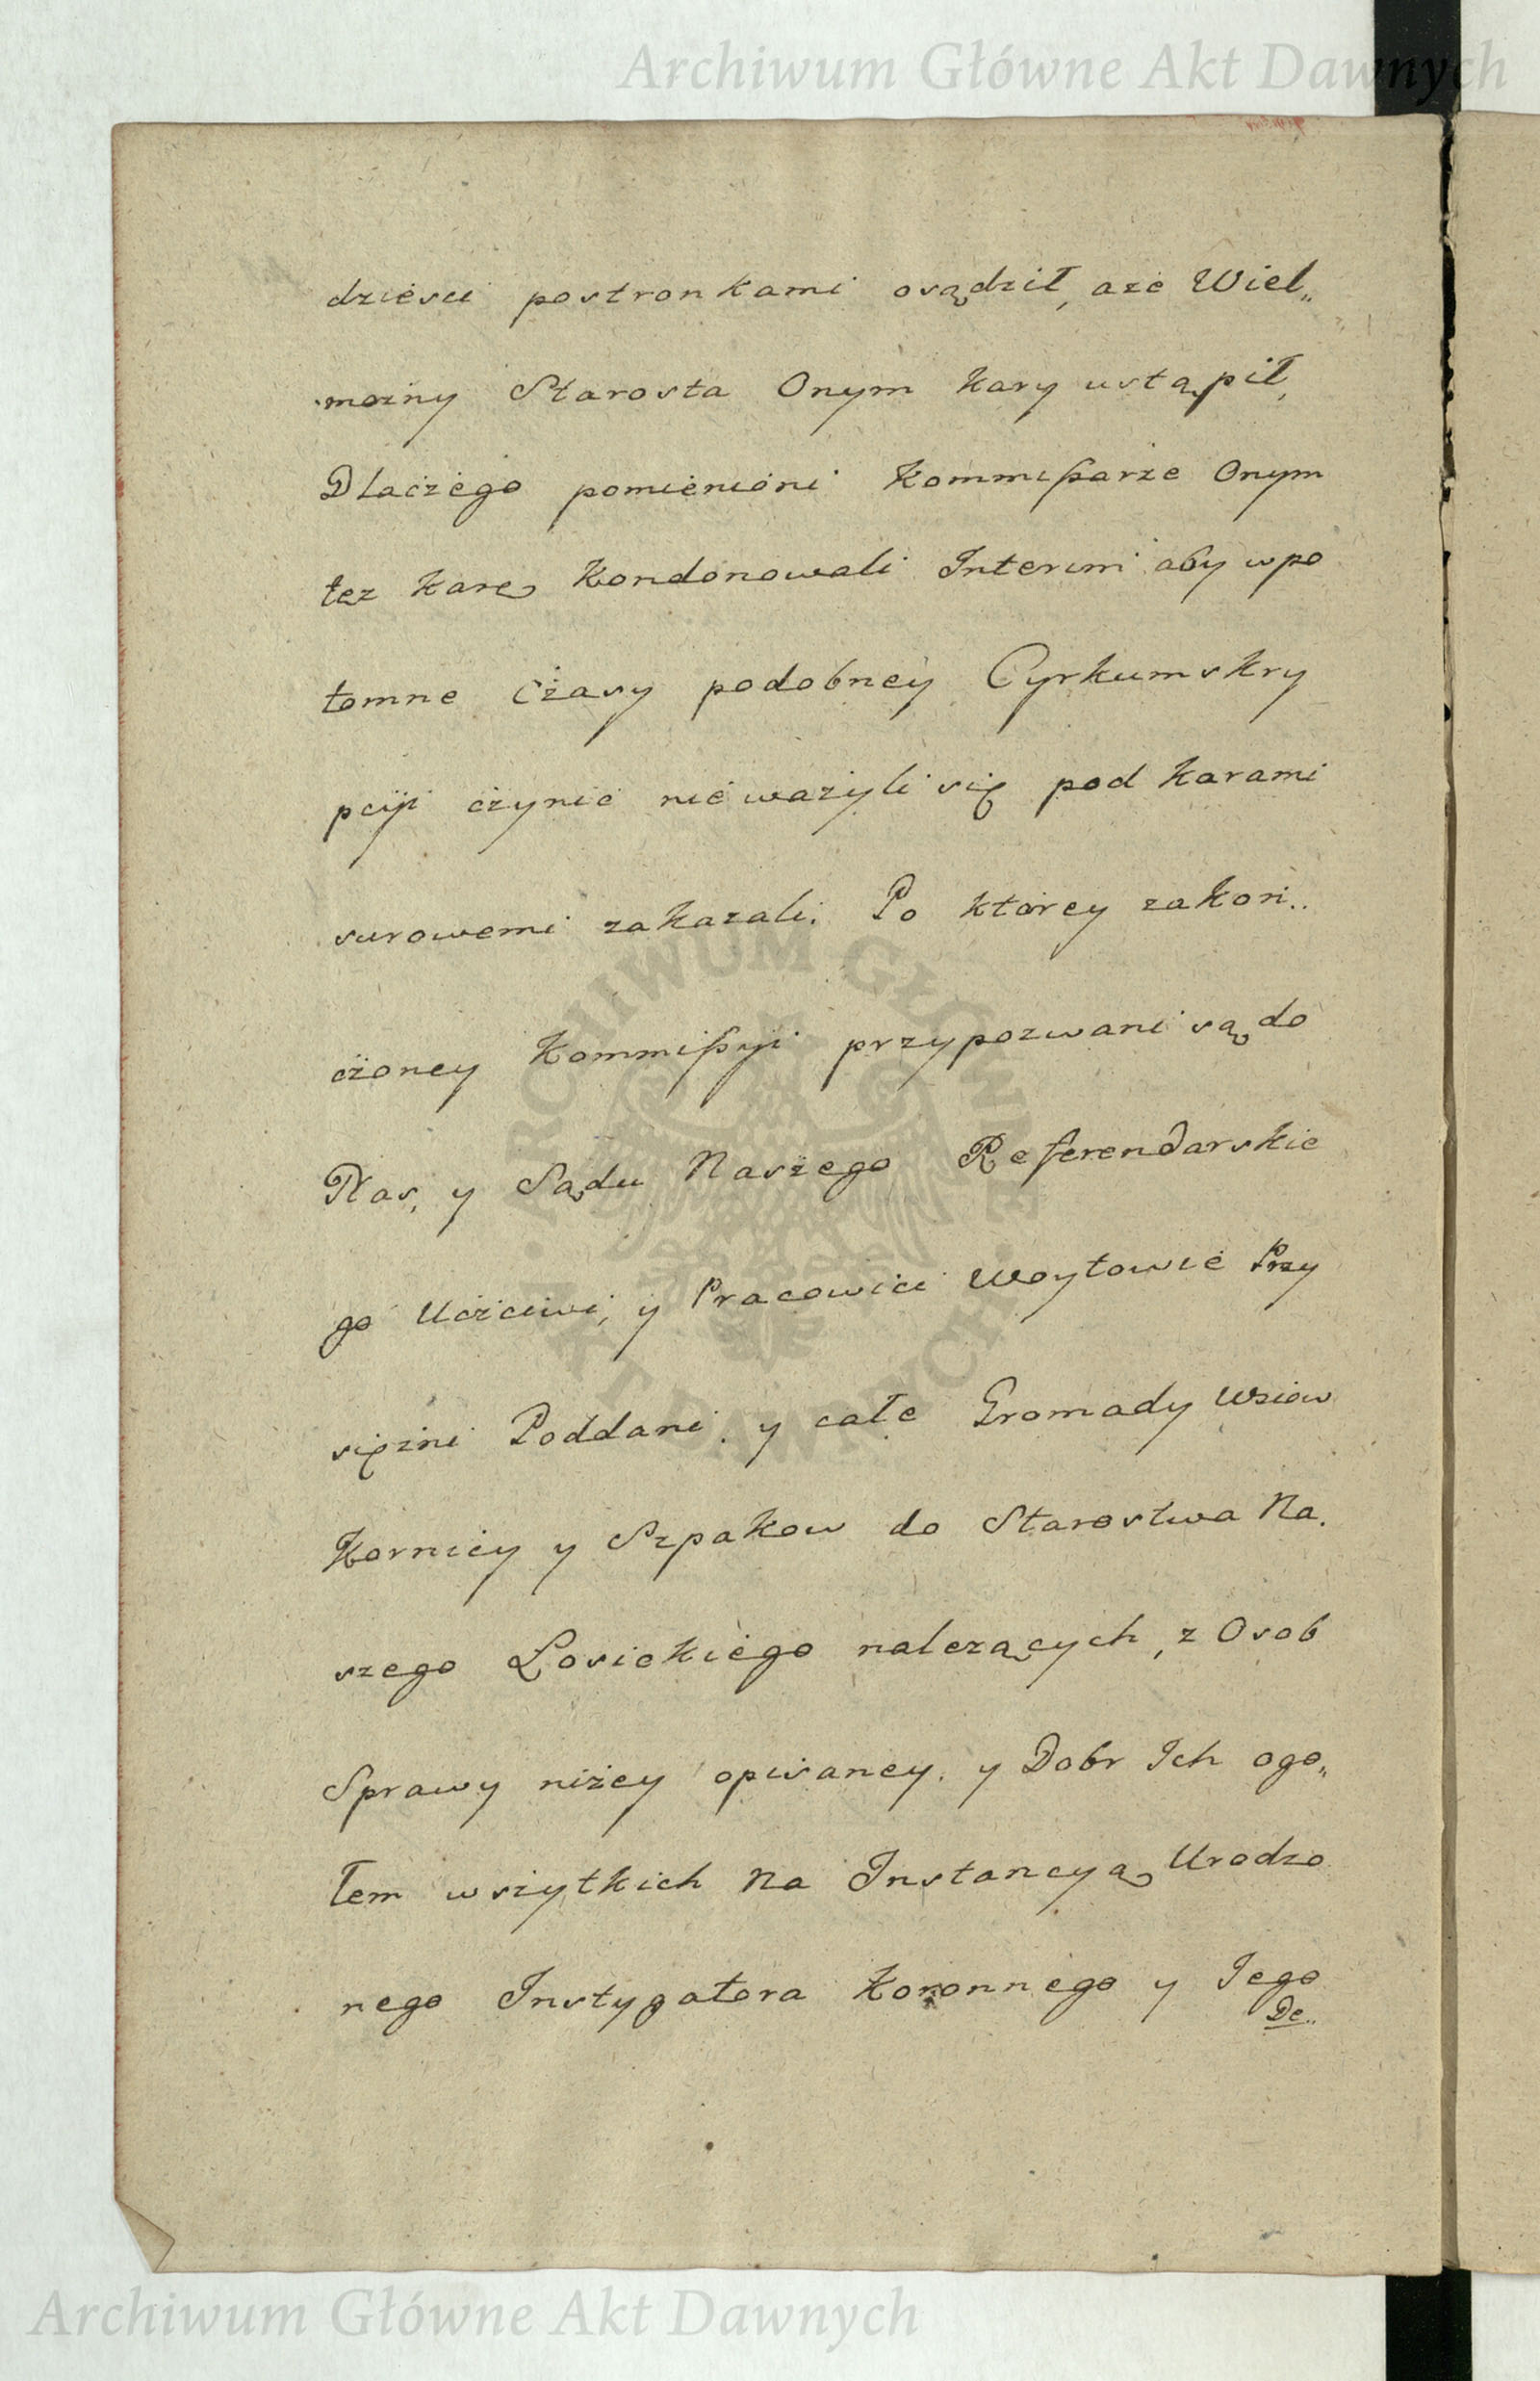 Archiwum Główne Akt Dawnych
dzieści postronkami osądził, aże Wiel„
możny Starosta Onym kary ustąpił,
Dlaczego pomienióni Kommissarze Onym
tęz karę Kondonowali Interim aby wpo
tomne czasy podobney Cyrkumskry
pcyi czynić nie ważyli się pod karami
surowemi zakazali. Po którey zakoń..
czoney Kommissyi przypozwani są do
Nas, y Sądu Naszego Referendarskie
go Uczciwi, y Pracowici Woytowie Przy
siężni Poddani y całe Gromady Wsiow
Kornicy y Szpakow do Starostwa Na.
szego Łosickiego należących, z Osob
Sprawy niżey opisaney. y Dobr Ich ogo„
łem wszytkich Na Instancyą Urodzo
nego Instygatora Koronnego y Jego
De..
ARCHIWUM GŁÓWNE · AKT DAWNYCH ·
Archiwum Główne Akt Dawnych